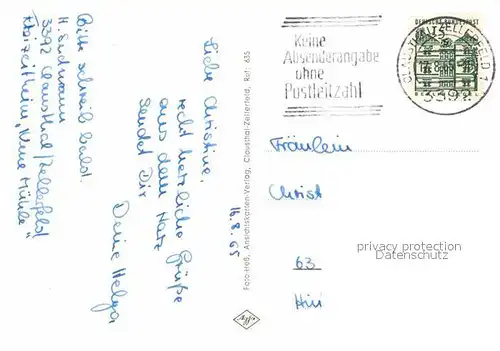 16.8.65
Liebe Christine,
recht herzliche Grüße
aus dem Harz
sendet Dir
Deine Helga
Bitte schreib bald.
H.
3392 Clausthal/Zellerfeld
"Neue Mühle"
Foto-Heß, Ansichtskarten-Verlag, Clausthal-Zellerfeld, Ruf: 635
Keine
Absenderangabe
ohne
Postleitzahl
DEUTSCHE BUNDESPOST
CLAUSTHAL-ZELLERFELD 1
3392
Fräulein
Christ
63
privacy protection
AnsichtskartenVersand.com